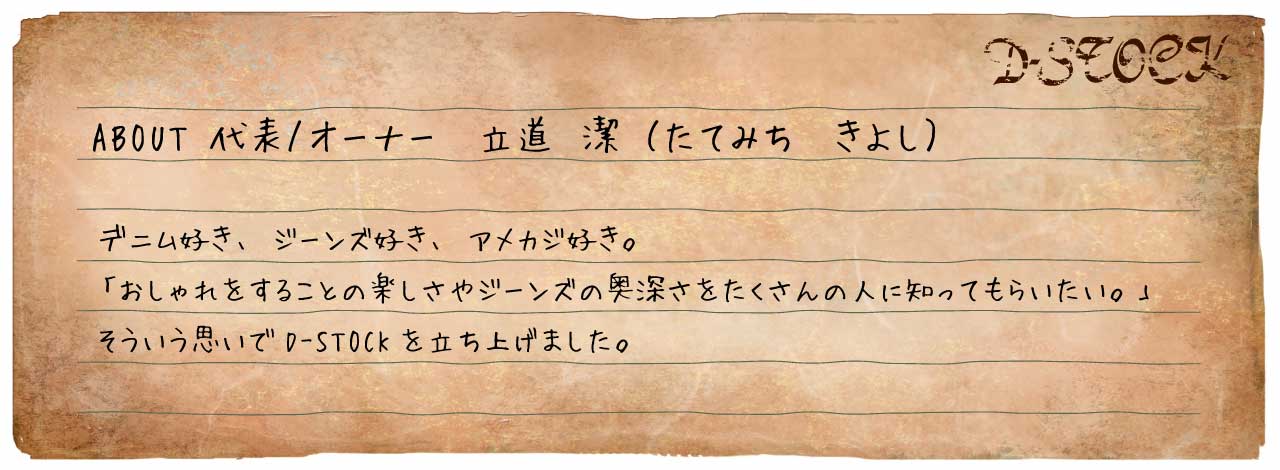 D-STOCK
ABOUT 代表/オーナー　立道　潔（たてみち　きよし）
デニム好き、ジーンズ好き、アメカジ好き。
「おしゃれをすることの楽しさやジーンズの奥深さをたくさんの人に知ってもらいたい。」
そういう思いでD-STOCKを立ち上げました。